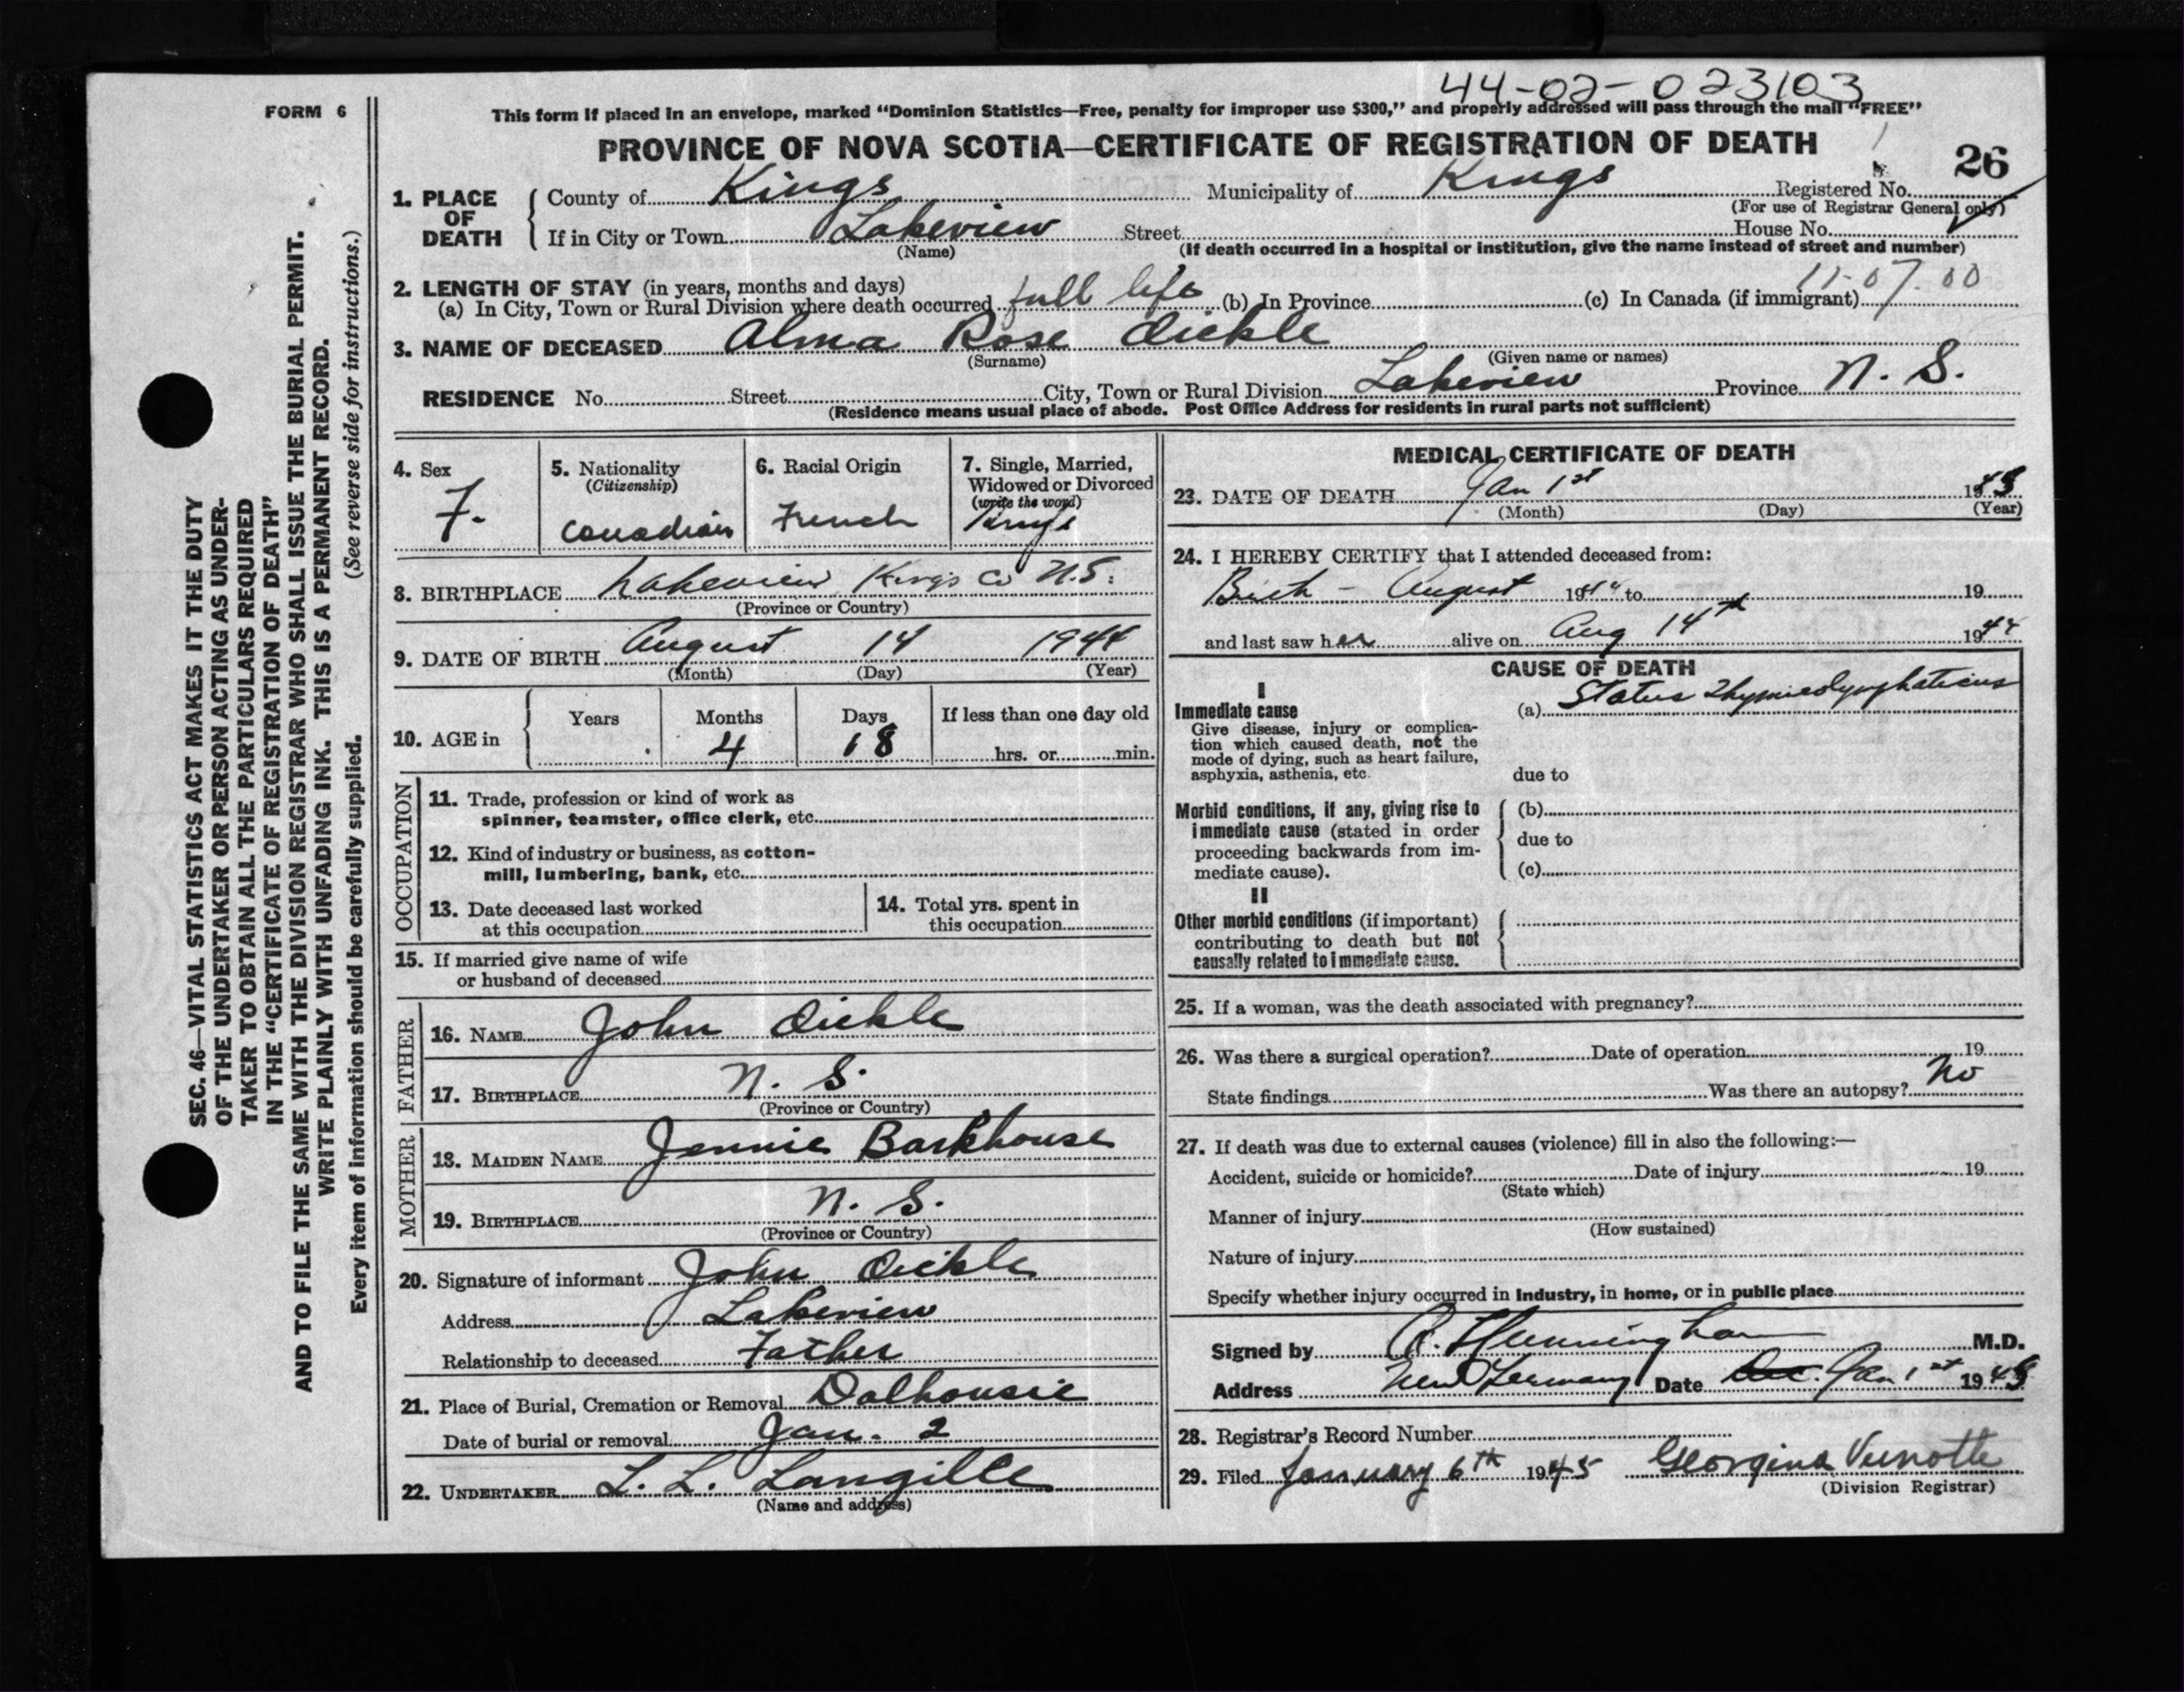 44-02-023103
FORM 6
This form if placed in an envelope, marked "Dominion Statistics—Free, penalty for improper use $300," and properly addressed will pass through the mail "FREE"
PROVINCE OF NOVA SCOTIA—CERTIFICATE OF REGISTRATION OF DEATH
26
1. PLACE OF DEATH { County of Kings Municipality of Kings Registered No.
(For use of Registrar General only)
If in City or Town Lakeview Street House No.
(Name) (If death occurred in a hospital or institution, give the name instead of street and number)
11-07.00
2. LENGTH OF STAY (in years, months and days)
(a) In City, Town or Rural Division where death occurred full life (b) In Province (c) In Canada (if immigrant)
3. NAME OF DECEASED Alma Rose Oickle
(Surname) (Given name or names)
RESIDENCE No. Street City, Town or Rural Division Lakeview Province N. S.
(Residence means usual place of abode. Post Office Address for residents in rural parts not sufficient)
4. Sex
F.
5. Nationality
(Citizenship)
Canadian
6. Racial Origin
French
7. Single, Married,
Widowed or Divorced
(write the word)
8. BIRTHPLACE Lakeview Kings Co N.S.
(Province or Country)
9. DATE OF BIRTH August 14 1944
(Month) (Day) (Year)
10. AGE in { Years Months Days If less than one day old
4 18 hrs. or min.
OCCUPATION
11. Trade, profession or kind of work as
spinner, teamster, office clerk, etc.
12. Kind of industry or business, as cotton-
mill, lumbering, bank, etc.
13. Date deceased last worked
at this occupation
14. Total yrs. spent in
this occupation
15. If married give name of wife
or husband of deceased
FATHER
16. NAME John Oickle
17. BIRTHPLACE N. S.
(Province or Country)
MOTHER
18. MAIDEN NAME Jennie Barkhouse
19. BIRTHPLACE N. S.
(Province or Country)
20. Signature of informant John Oickle
Address Lakeview
Relationship to deceased Father
21. Place of Burial, Cremation or Removal Dalhousie
Date of burial or removal Jan. 2
22. UNDERTAKER L. L. Langille
(Name and address)
MEDICAL CERTIFICATE OF DEATH
23. DATE OF DEATH Jan 1st 1945
(Month) (Day) (Year)
24. I HEREBY CERTIFY that I attended deceased from:
Birth - August 1944 to 19
and last saw her alive on Aug 14th 1944
CAUSE OF DEATH
I
Immediate cause
Give disease, injury or complica-
tion which caused death, not the
mode of dying, such as heart failure,
asphyxia, asthenia, etc.
(a) Status Thymicolymphaticus
due to
Morbid conditions, if any, giving rise to
immediate cause (stated in order
proceeding backwards from im-
mediate cause).
(b)
due to
(c)
II
Other morbid conditions (if important)
contributing to death but not
causally related to immediate cause.
25. If a woman, was the death associated with pregnancy?
26. Was there a surgical operation? Date of operation 19
State findings Was there an autopsy? No
27. If death was due to external causes (violence) fill in also the following:—
Accident, suicide or homicide? Date of injury 19
(State which)
Manner of injury
(How sustained)
Nature of injury
Specify whether injury occurred in industry, in home, or in public place
Signed by M.D.
Address New Germany Date Jan 1st 1945
28. Registrar's Record Number
29. Filed January 6th 1945 Georgina
(Division Registrar)
SEC. 46—VITAL STATISTICS ACT MAKES IT THE DUTY
OF THE UNDERTAKER OR PERSON ACTING AS UNDER-
TAKER TO OBTAIN ALL THE PARTICULARS REQUIRED
IN THE "CERTIFICATE OF REGISTRATION OF DEATH"
AND TO FILE THE SAME WITH THE DIVISION REGISTRAR WHO SHALL ISSUE THE BURIAL PERMIT.
WRITE PLAINLY WITH UNFADING INK. THIS IS A PERMANENT RECORD.
Every item of information should be carefully supplied. (See reverse side for instructions.)